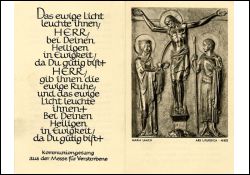 Das ewige Licht
leuchte ihnen,
HERR,
bei Deinen
Heiligen
in Ewigkeit,
da Du gütig bist+
HERR,
gib ihnen die
ewige Ruhe,
und das ewige
Licht leuchte
ihnen+
Bei Deinen
Heiligen
in Ewigkeit,
da Du gütig bist+
Kommuniongesang
aus der Messe für Verstorbene
MARIA LAACH
ARS LITURGICA